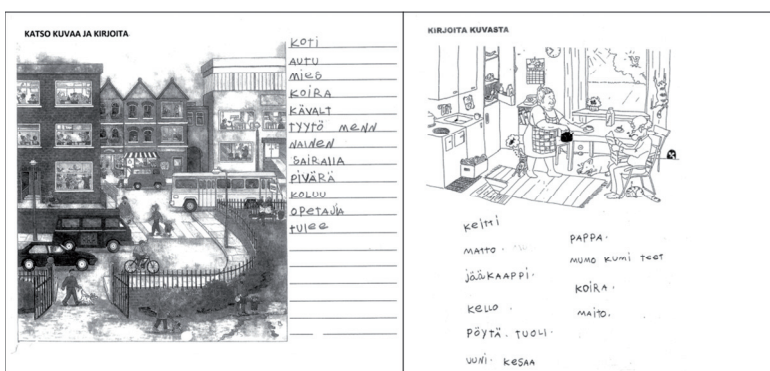 KATSO KUVAA JA KIRJOITA
KOTI
AUTU
MIES
KOIRA
KÄVALT
TYYTÖ MENN
NAINEN
SAIRALLA
PIVÄRÄ
KOLUU
OPETAJIA
tulee
KIRJOITA KUVASTA
KEITTI
MATTO
JÄÄKAAPPI.
KELLO.
PÖYTÄ. TUOLI.
UUNI. KESAA
PAPPA.
MUMO KUMI TEET
KOIRA.
MAITO.